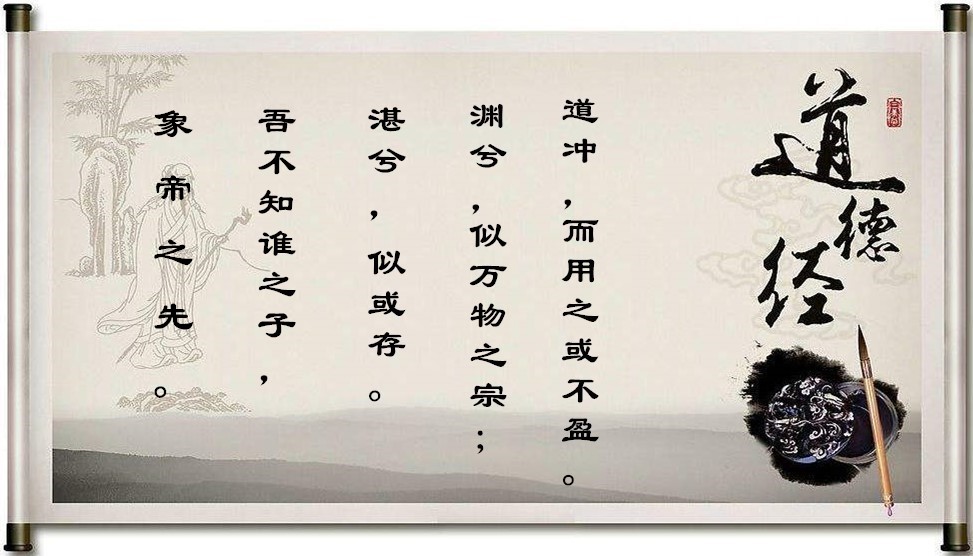 道德经
道冲，而用之或不盈。
渊兮，似万物之宗；
湛兮，似或存。
吾不知谁之子，
象帝之先。